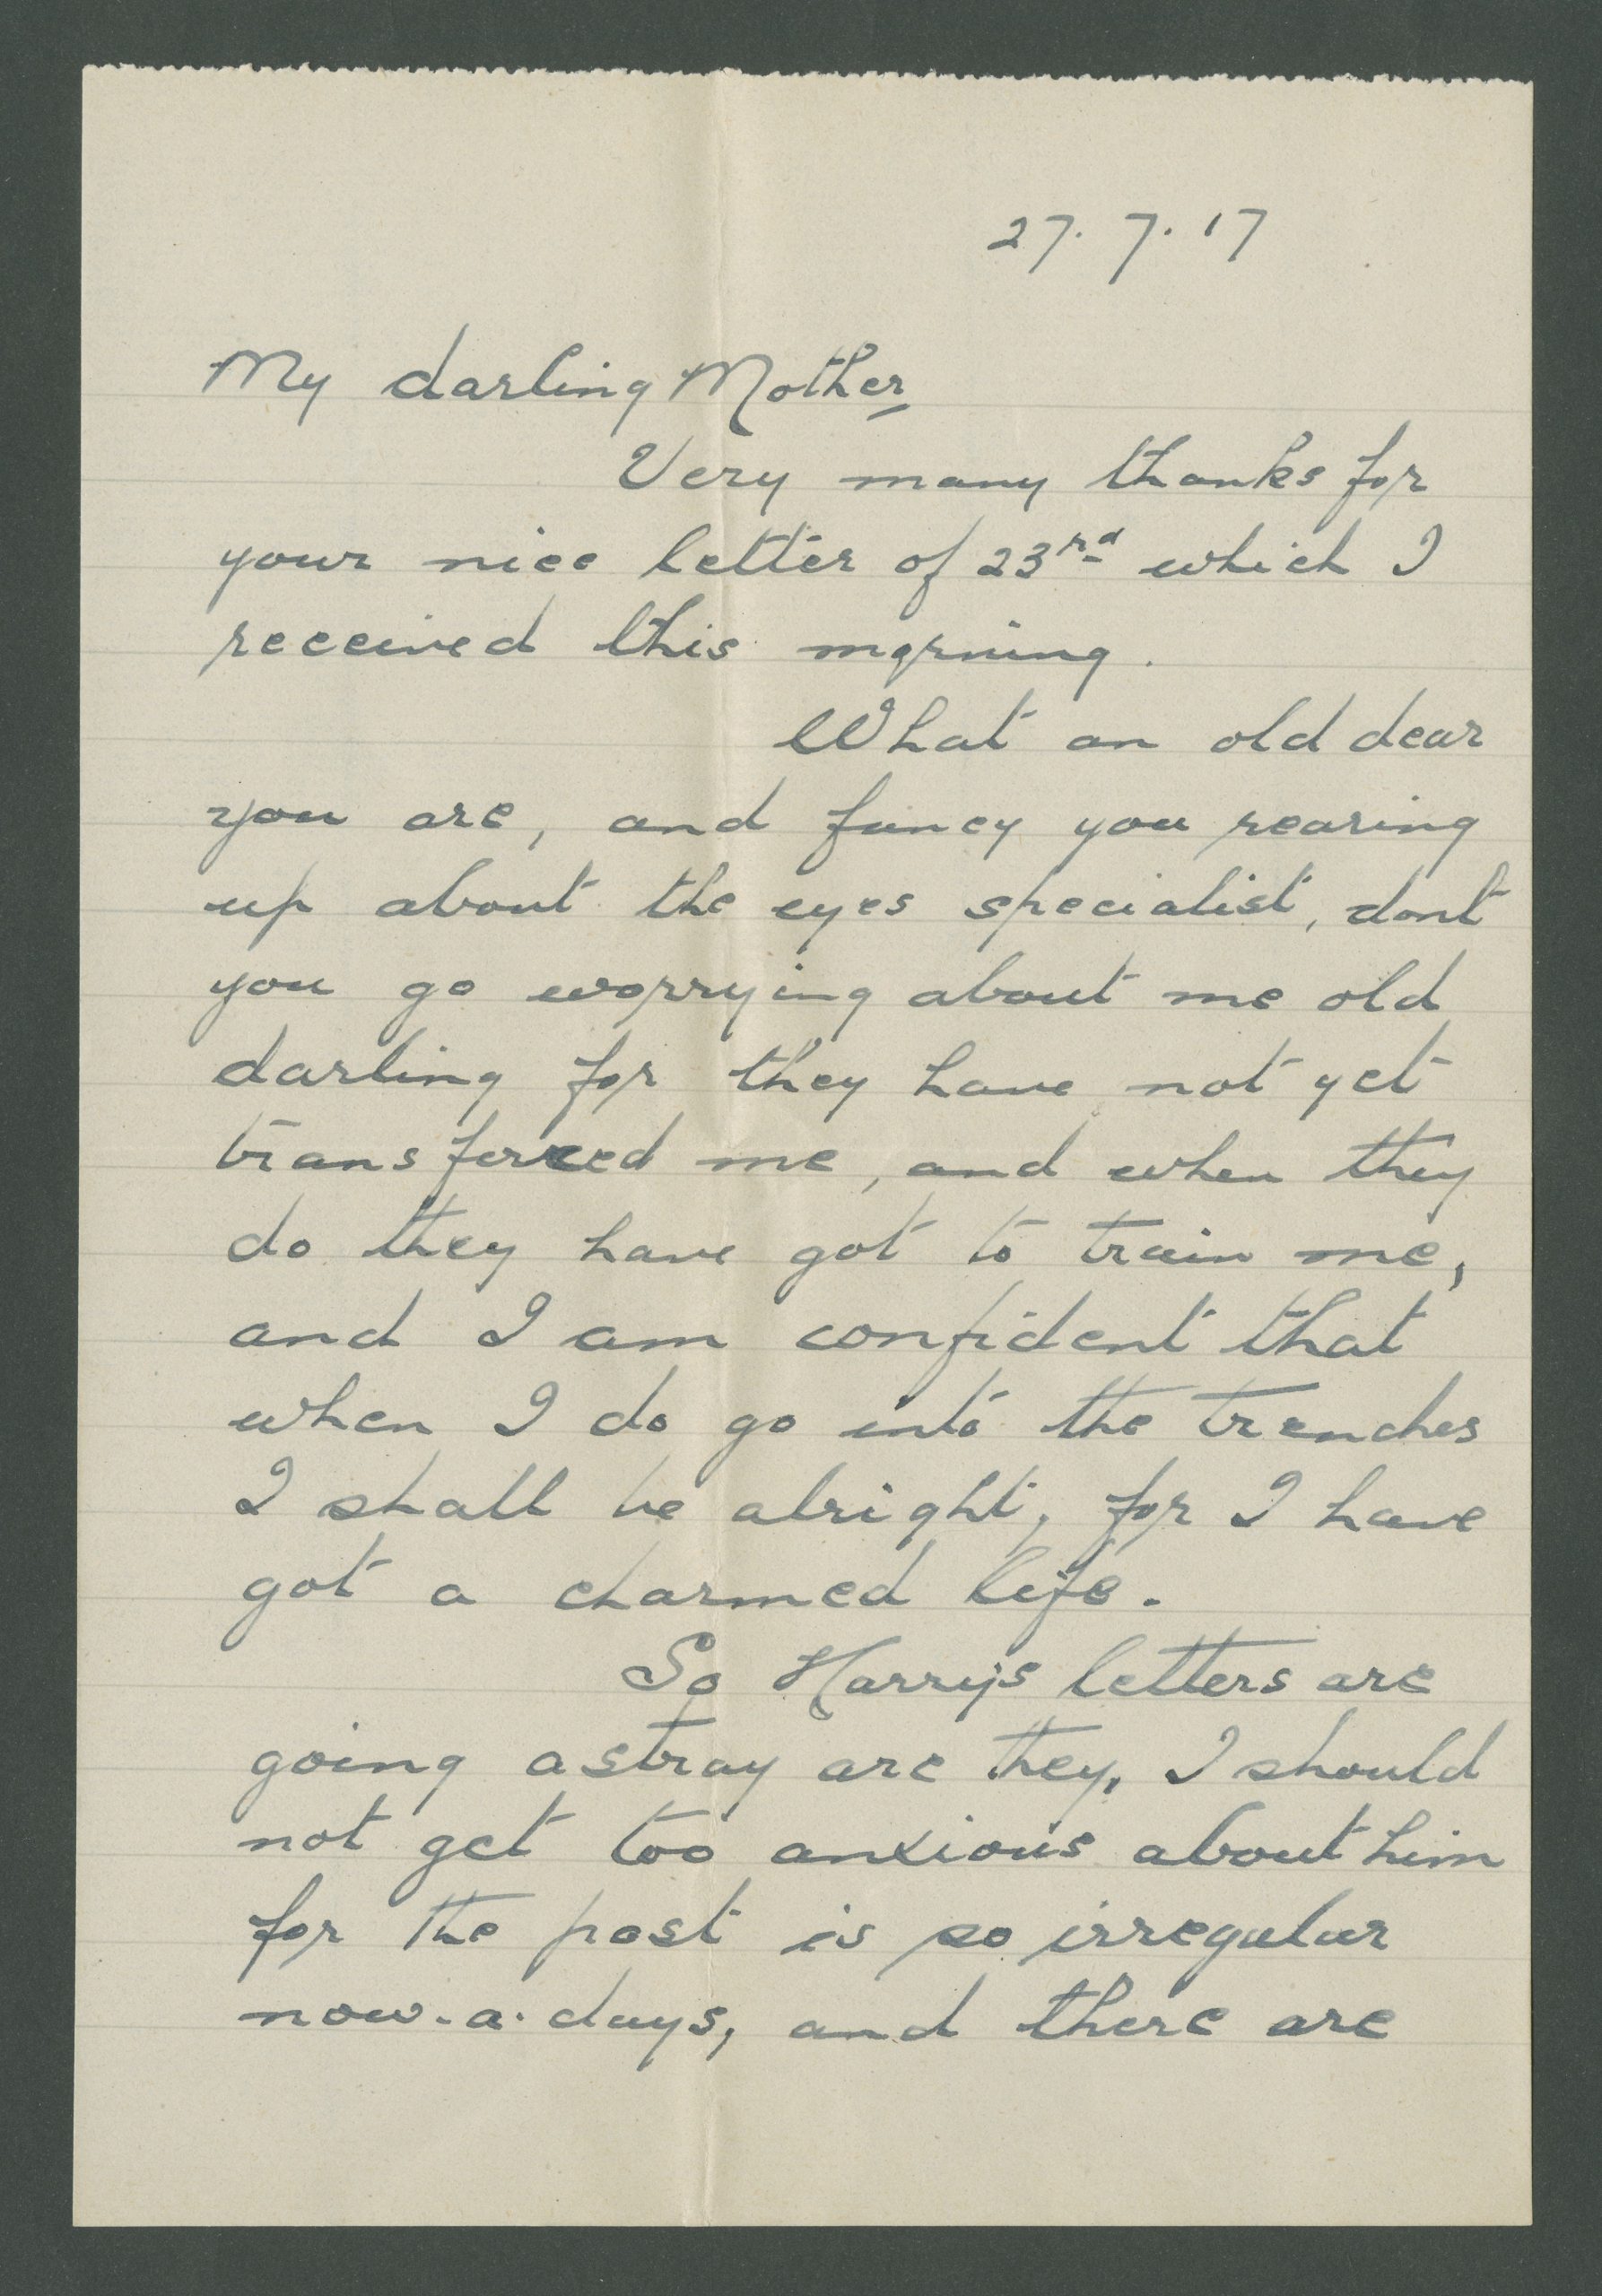 27. 7. 17
My darling Mother
Very many thanks for
your nice letter of 23rd which I
received this morning.
What an old dear
you are, and fancy you rearing
up about the eyes specialist, dont
you go worrying about me old
darling for they have not yet
transferred me, and when they
do they have got to train me,
and I am confident that
when I do go into the trenches
I shall be alright, for I have
got a charmed life.
So Harrys letters are
going astray are they, I should
not get too anxious about him
for the post is so irregular
now-a-days, and there are